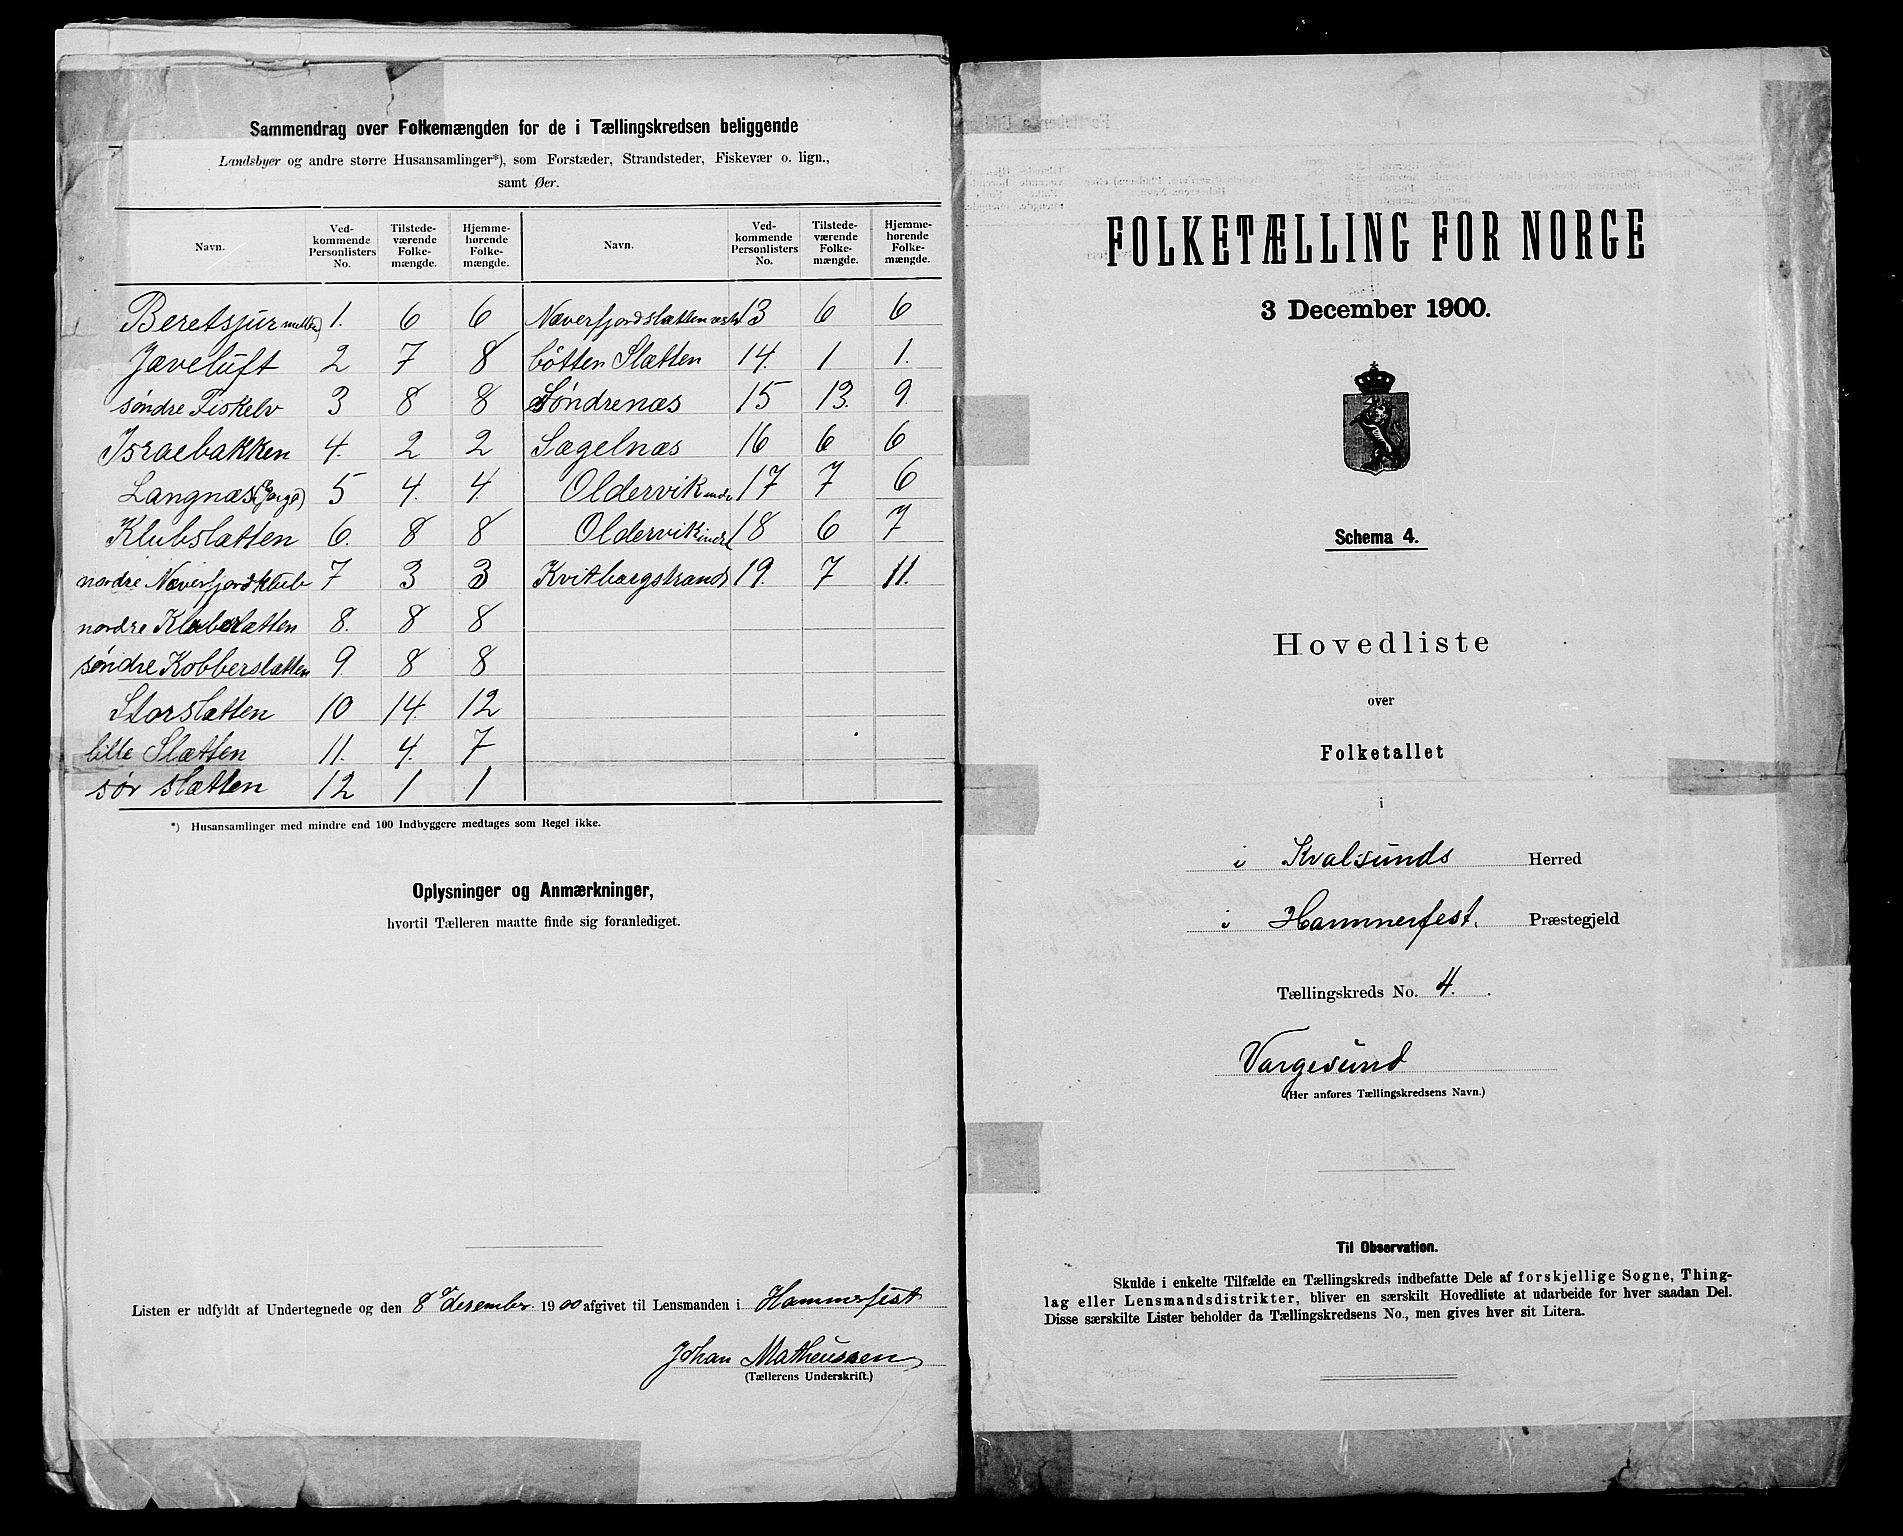 Sammendrag over Folkemængden for de i Tællingskredsen beliggende
Landsbyer og andre større Husansamlinger*), som Forstæder, Strandsteder, Fiskevær o. lign.,
samt Øer.
Navn. Ved-kommende Personlisters No. Tilstede-værende Folke-mængde. Hjemme-hørende Folke-mængde. Navn. Ved-kommende Personlisters No. Tilstede-værende Folke-mængde. Hjemme-hørende Folke-mængde.
Beretsjur 1. 6 6 Næverfjordslatten 13 6 6
Jæveluft 2 7 8 bótten Slatten 14. 1 1.
søndre Fiskelv 3 8 8 Søndrenæs 15 13. 9.
Israelbakken 4. 2 2 Sægelnæs 16 6 6
Langnæs 5 4. 4. Oldervik 17 7 6
Klubslatten 6. 8 8 Oldervik indre 18 6 7
nordre Næverfjordklub 7 3 3 Kvitbargstrand 19. 7 11.
nordre Klubslatten 8. 8 8
søndre Kobberslætten 9. 8 8
Storslatten 10 14. 12
lille Slætten 11. 4. 7
sør slætten 12 1 1
*) Husansamlinger med mindre end 100 Indbyggere medtages som Regel ikke.
Oplysninger og Anmærkninger,
hvortil Tælleren maatte finde sig foranlediget.
Listen er udfyldt af Undertegnede og den 8de desember 1900 afgivet til Lensmanden i Hammerfest
Johan Matheussen
(Tællerens Underskrift.)
FOLKETÆLLING FOR NORGE
3 December 1900.
Schema 4.
Hovedliste
over
Folketallet
i
i Kvalsunds Herred
i Hammerfest. Præstegjeld
Tællingskreds No. 4.
Vargesund
(Her anføres Tællingskredsens Navn.)
Til Observation.
Skulde i enkelte Tilfælde en Tællingskreds indbefatte Dele af forskjellige Sogne, Thing-
lag eller Lensmandsdistrikter, bliver en særskilt Hovedliste at udarbeide for hver saadan Del.
Disse særskilte Lister beholder da Tællingskredsens No., men gives hver sit Litera.